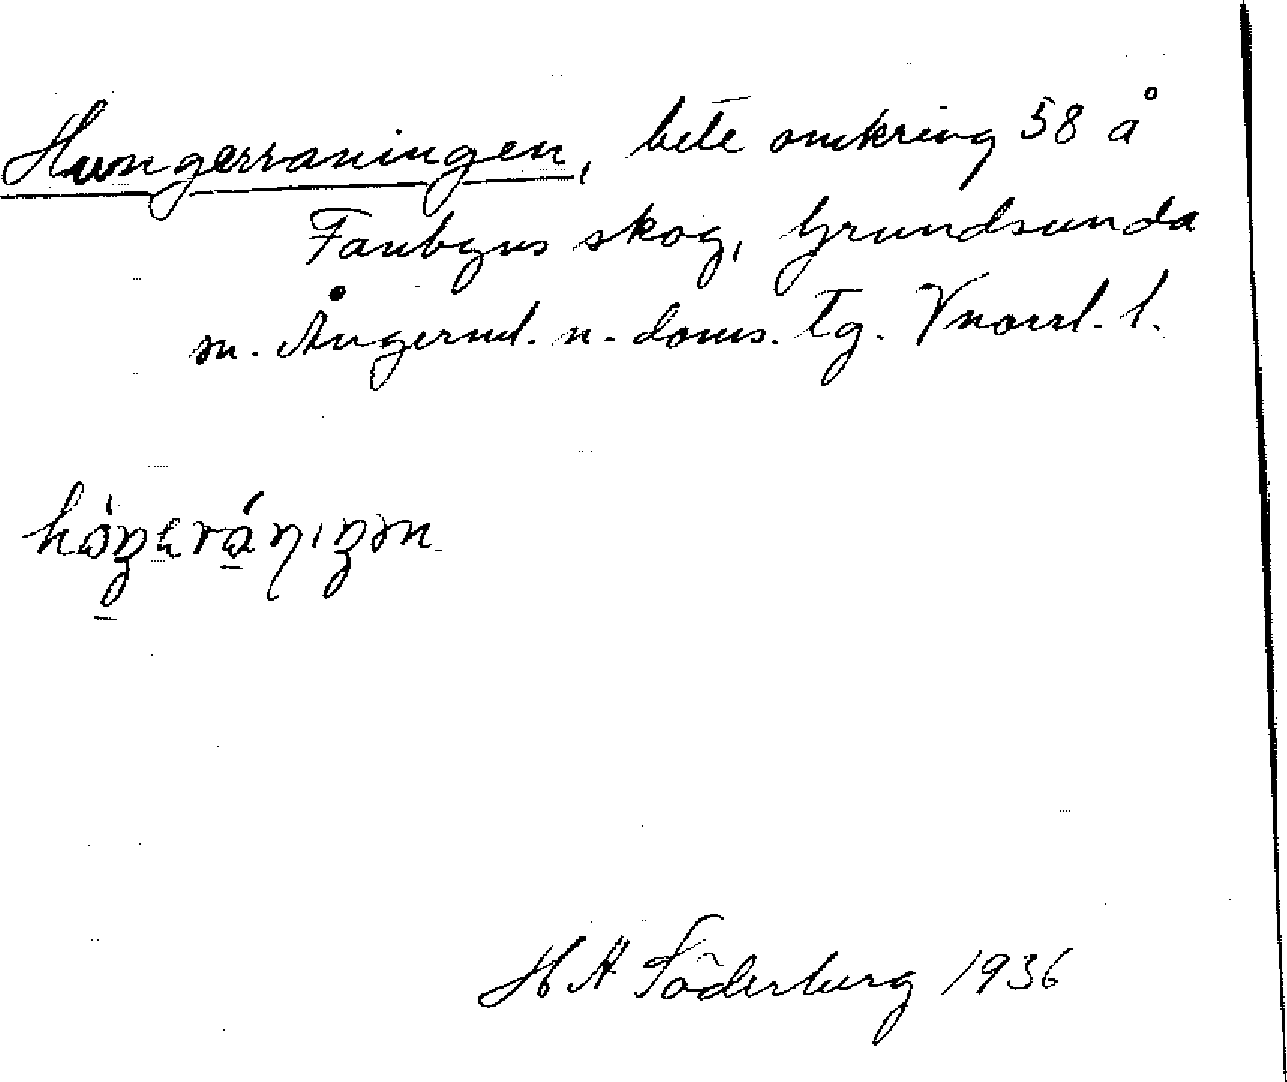 Hungerraningen, bete omkring 58 å
Fanbyns skog, Grundsunda
sn. Ångerml. n. doms. tg. Vnorrl. l.
H A Söderberg 1936